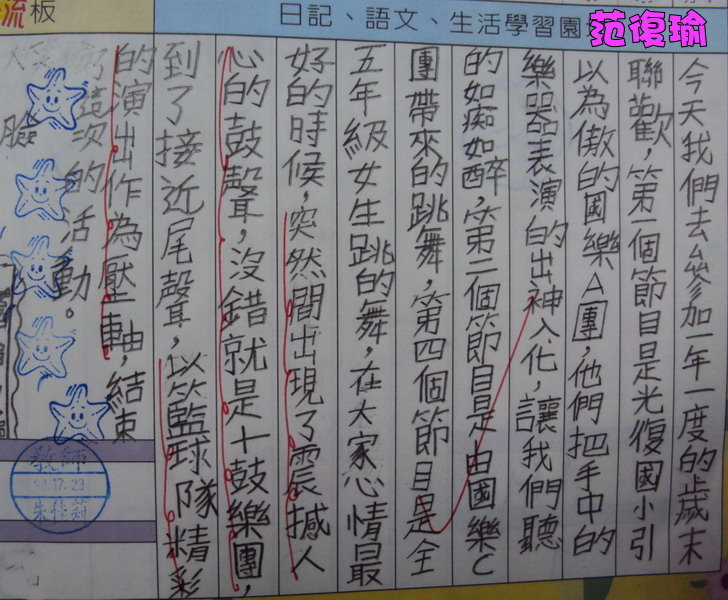 流板
日記、語文、生活學習園
范復瑜
今天我們去參加一年一度的歲末
聯歡，第一個節目是光復國小引
以為傲的國樂A團，他們把手中的
樂器表演的出神入化，讓我們聽
的如痴如醉，第二個節目是由國樂C
團帶來的跳舞，第四個節目是全
五年級女生跳的舞，在大家心情最
好的時候，突然間出現了震撼人
心的鼓聲，沒錯就是十鼓樂團，
到了接近尾聲，以籃球隊精彩
的演出作為壓軸，結束
了這次的活動。
臉
教師